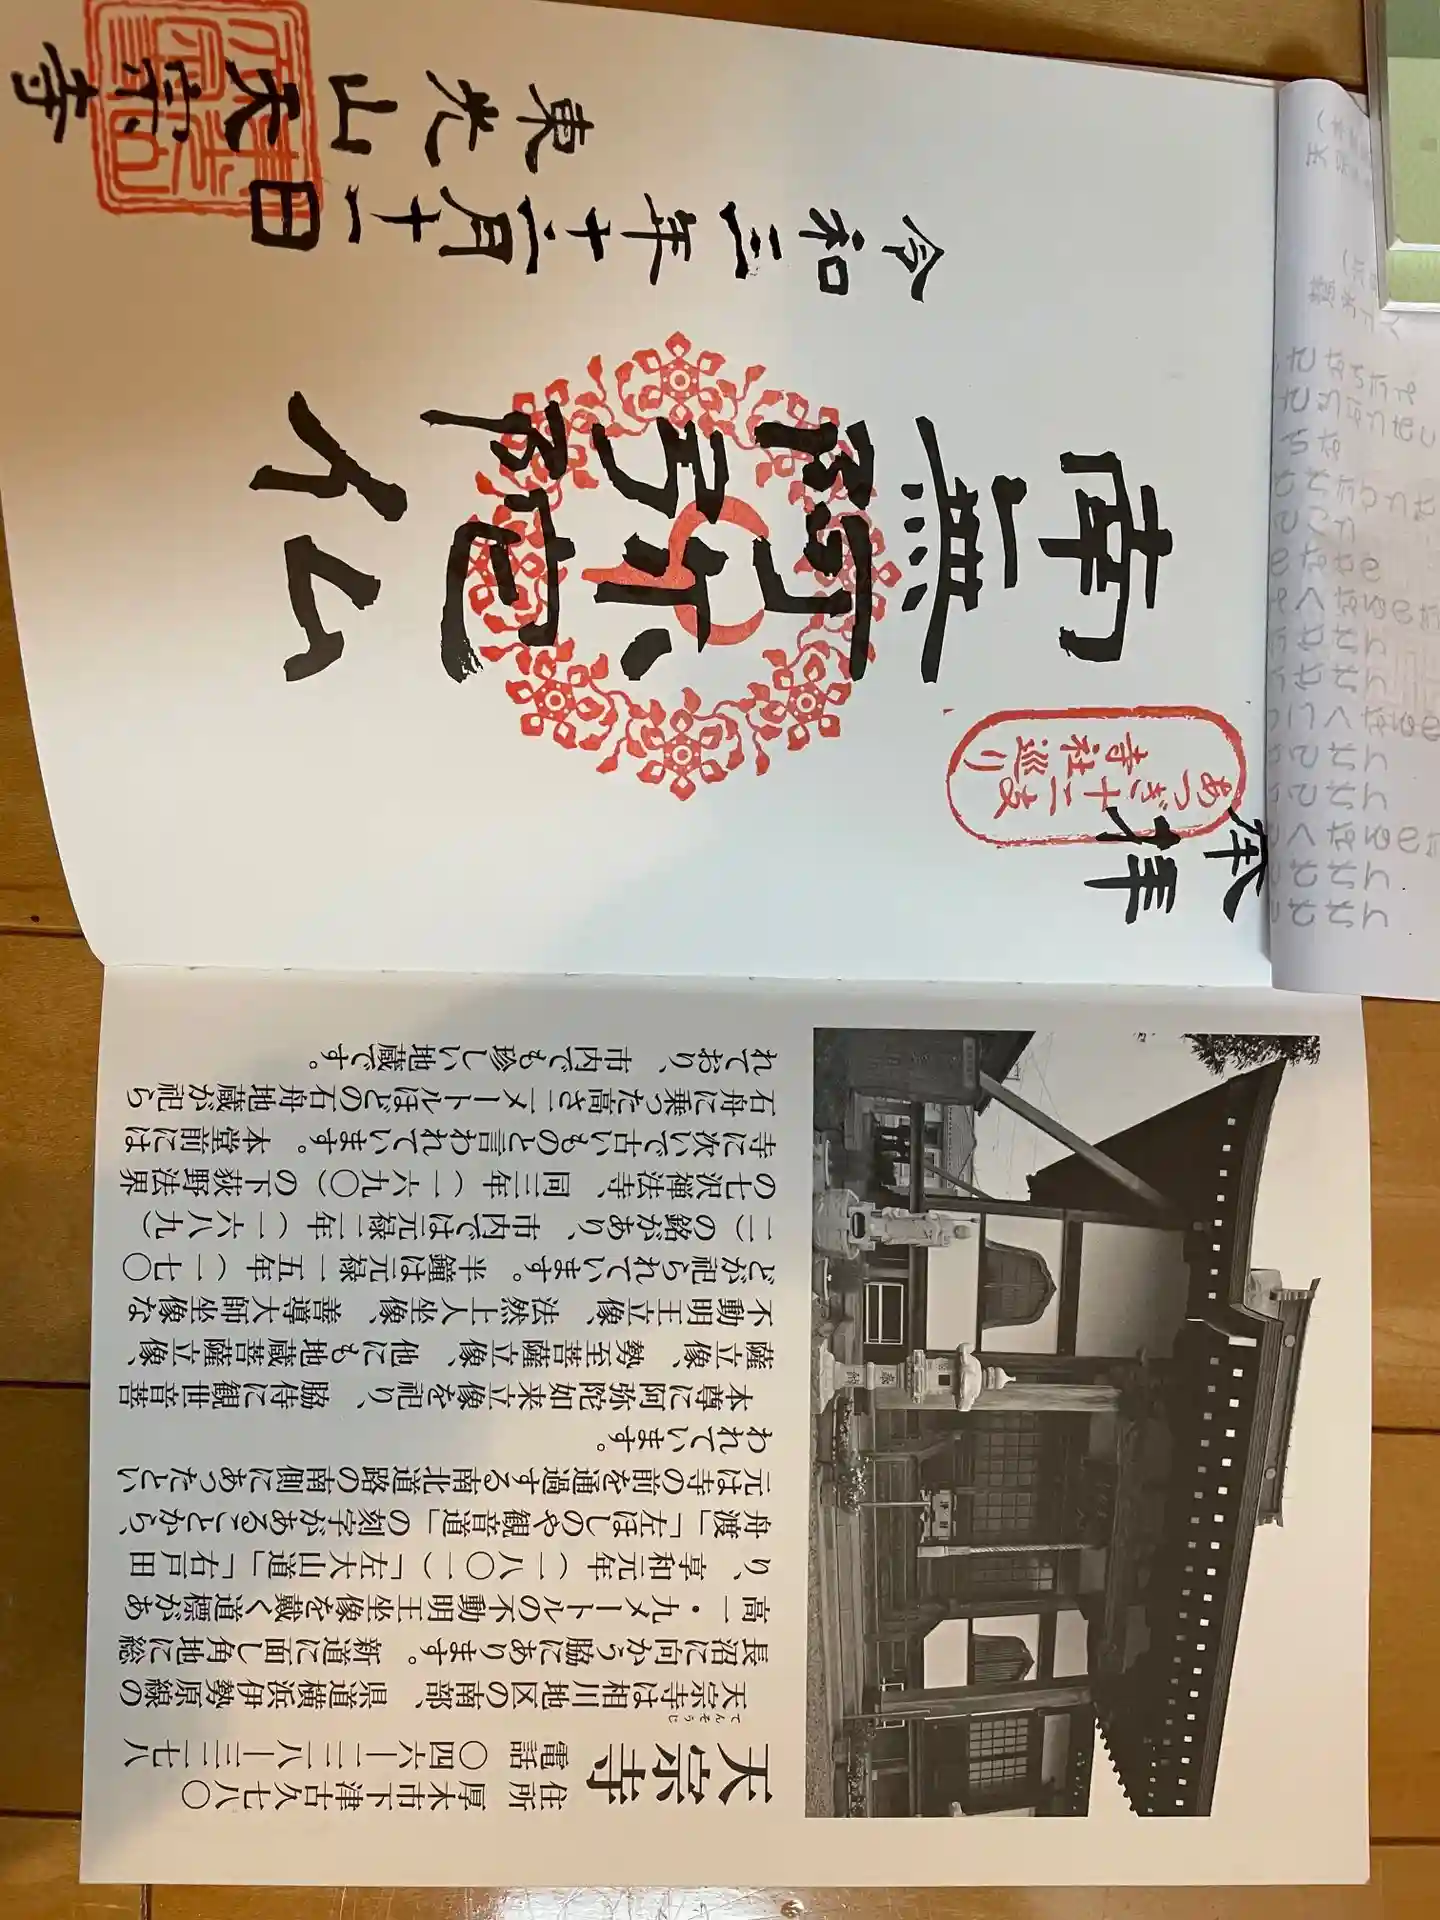 奉拝
あつぎ十二支
寺社巡り
南無阿弥陀仏
令和三年十二月十一日
東光山天宗寺
天宗寺
住所 厚木市下津古久七八〇
電話 〇四六―二二八―三二七八
てんそうじ
天宗寺は相川地区の南部、県道横浜伊勢原線の
長沼に向かう脇にあります。新道に面し角地に総
高一・九メートルの不動明王坐像を戴く道標があ
り、享和元年（一八〇一）「左大山道」「右戸田
舟渡」「左ほしのや観音道」の刻字があることから、
元は寺の前を通過する南北道路の南側にあったとい
われています。
本尊に阿弥陀如来立像を祀り、脇侍に観世音菩
薩立像、勢至菩薩立像、他にも地蔵菩薩立像、
不動明王立像、法然上人坐像、善導大師坐像な
どが祀られています。半鐘は元禄一五年（一七〇
二）の銘があり、市内では元禄二年（一六八九）
の七沢禅法寺、同三年（一六九〇）の下荻野法界
寺に次いで古いものと言われています。本堂前には
石舟に乗った高さ二メートルほどの石舟地蔵が祀ら
れており、市内でも珍しい地蔵です。